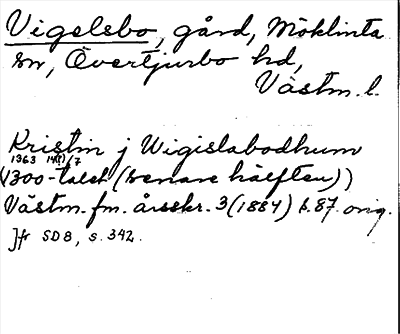 Vigelsbo, gård, Möklinta
sn, Övertjurbo hd,
Västm. l.
Kristin j Wigislabodhum
1363 14(?)/7
(1300-talet (senare hälften))
Västm. fm. årsskr. 3 (1884) s. 87. orig.
Jfr SD 8, s. 342.